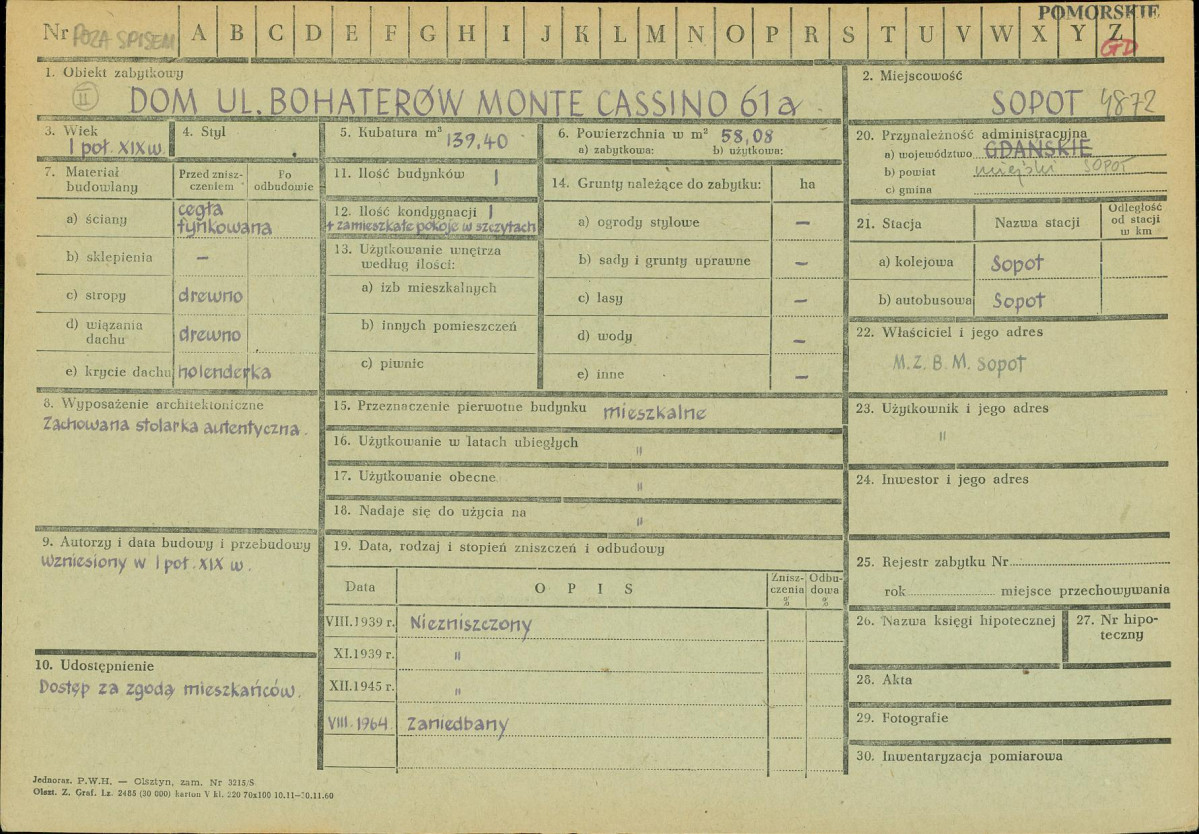 POMORSKIE
Nr POZA SPISEM A B C D E F G H I J K L M N O P R S T U V W X Y Z
GD
1. Obiekt zabytkowy
II DOM UL. BOHATERÓW MONTE CASSINO 61a
2. Miejscowość
SOPOT 4872
3. Wiek
I poł. XIX w.
4. Styl
5. Kubatura m³ 139,40
6. Powierzchnia w m² 58,08
a) zabytkowa: b) użytkowa:
20. Przynależność administracyjna
a) województwo GDAŃSKIE
b) powiat miejski SOPOT
c) gmina
7. Materiał budowlany
Przed zniszczeniem
Po odbudowie
a) ściany cegła tynkowana
b) sklepienia –
c) stropy drewno
d) wiązania dachu drewno
e) krycie dachu holenderka
11. Ilość budynków 1
12. Ilość kondygnacji 1
+ zamieszkałe pokoje w szczytach
13. Użytkowanie wnętrza
według ilości:
a) izb mieszkalnych
b) innych pomieszczeń
c) piwnic
14. Grunty należące do zabytku: ha
a) ogrody stylowe –
b) sady i grunty uprawne –
c) lasy –
d) wody –
e) inne –
21. Stacja Nazwa stacji Odległość od stacji w km
a) kolejowa Sopot
b) autobusowa Sopot
22. Właściciel i jego adres
M.Z.B.M. Sopot
8. Wyposażenie architektoniczne
Zachowana stolarka autentyczna.
15. Przeznaczenie pierwotne budynku mieszkalne
16. Użytkowanie w latach ubiegłych "
17. Użytkowanie obecne "
18. Nadaje się do użycia na "
23. Użytkownik i jego adres
"
24. Inwestor i jego adres
9. Autorzy i data budowy i przebudowy
Wzniesiony w I poł. XIX w.
10. Udostępnienie
Dostęp za zgodą mieszkańców.
19. Data, rodzaj i stopień zniszczeń i odbudowy
Data O P I S Zniszczenia % Odbudowa %
VIII.1939 r. Niezniszczony
XI.1939 r. "
XII.1945 r. "
VIII.1964 Zaniedbany
25. Rejestr zabytku Nr
rok miejsce przechowywania
26. Nazwa księgi hipotecznej
27. Nr hipoteczny
28. Akta
29. Fotografie
30. Inwentaryzacja pomiarowa
Jednoraz. P.W.H. — Olsztyn, zam. Nr 3215/S
Olszt. Z. Graf. Lz. 2485 (30 000) karton V kl. 220 70x100 10.11—30.11.60